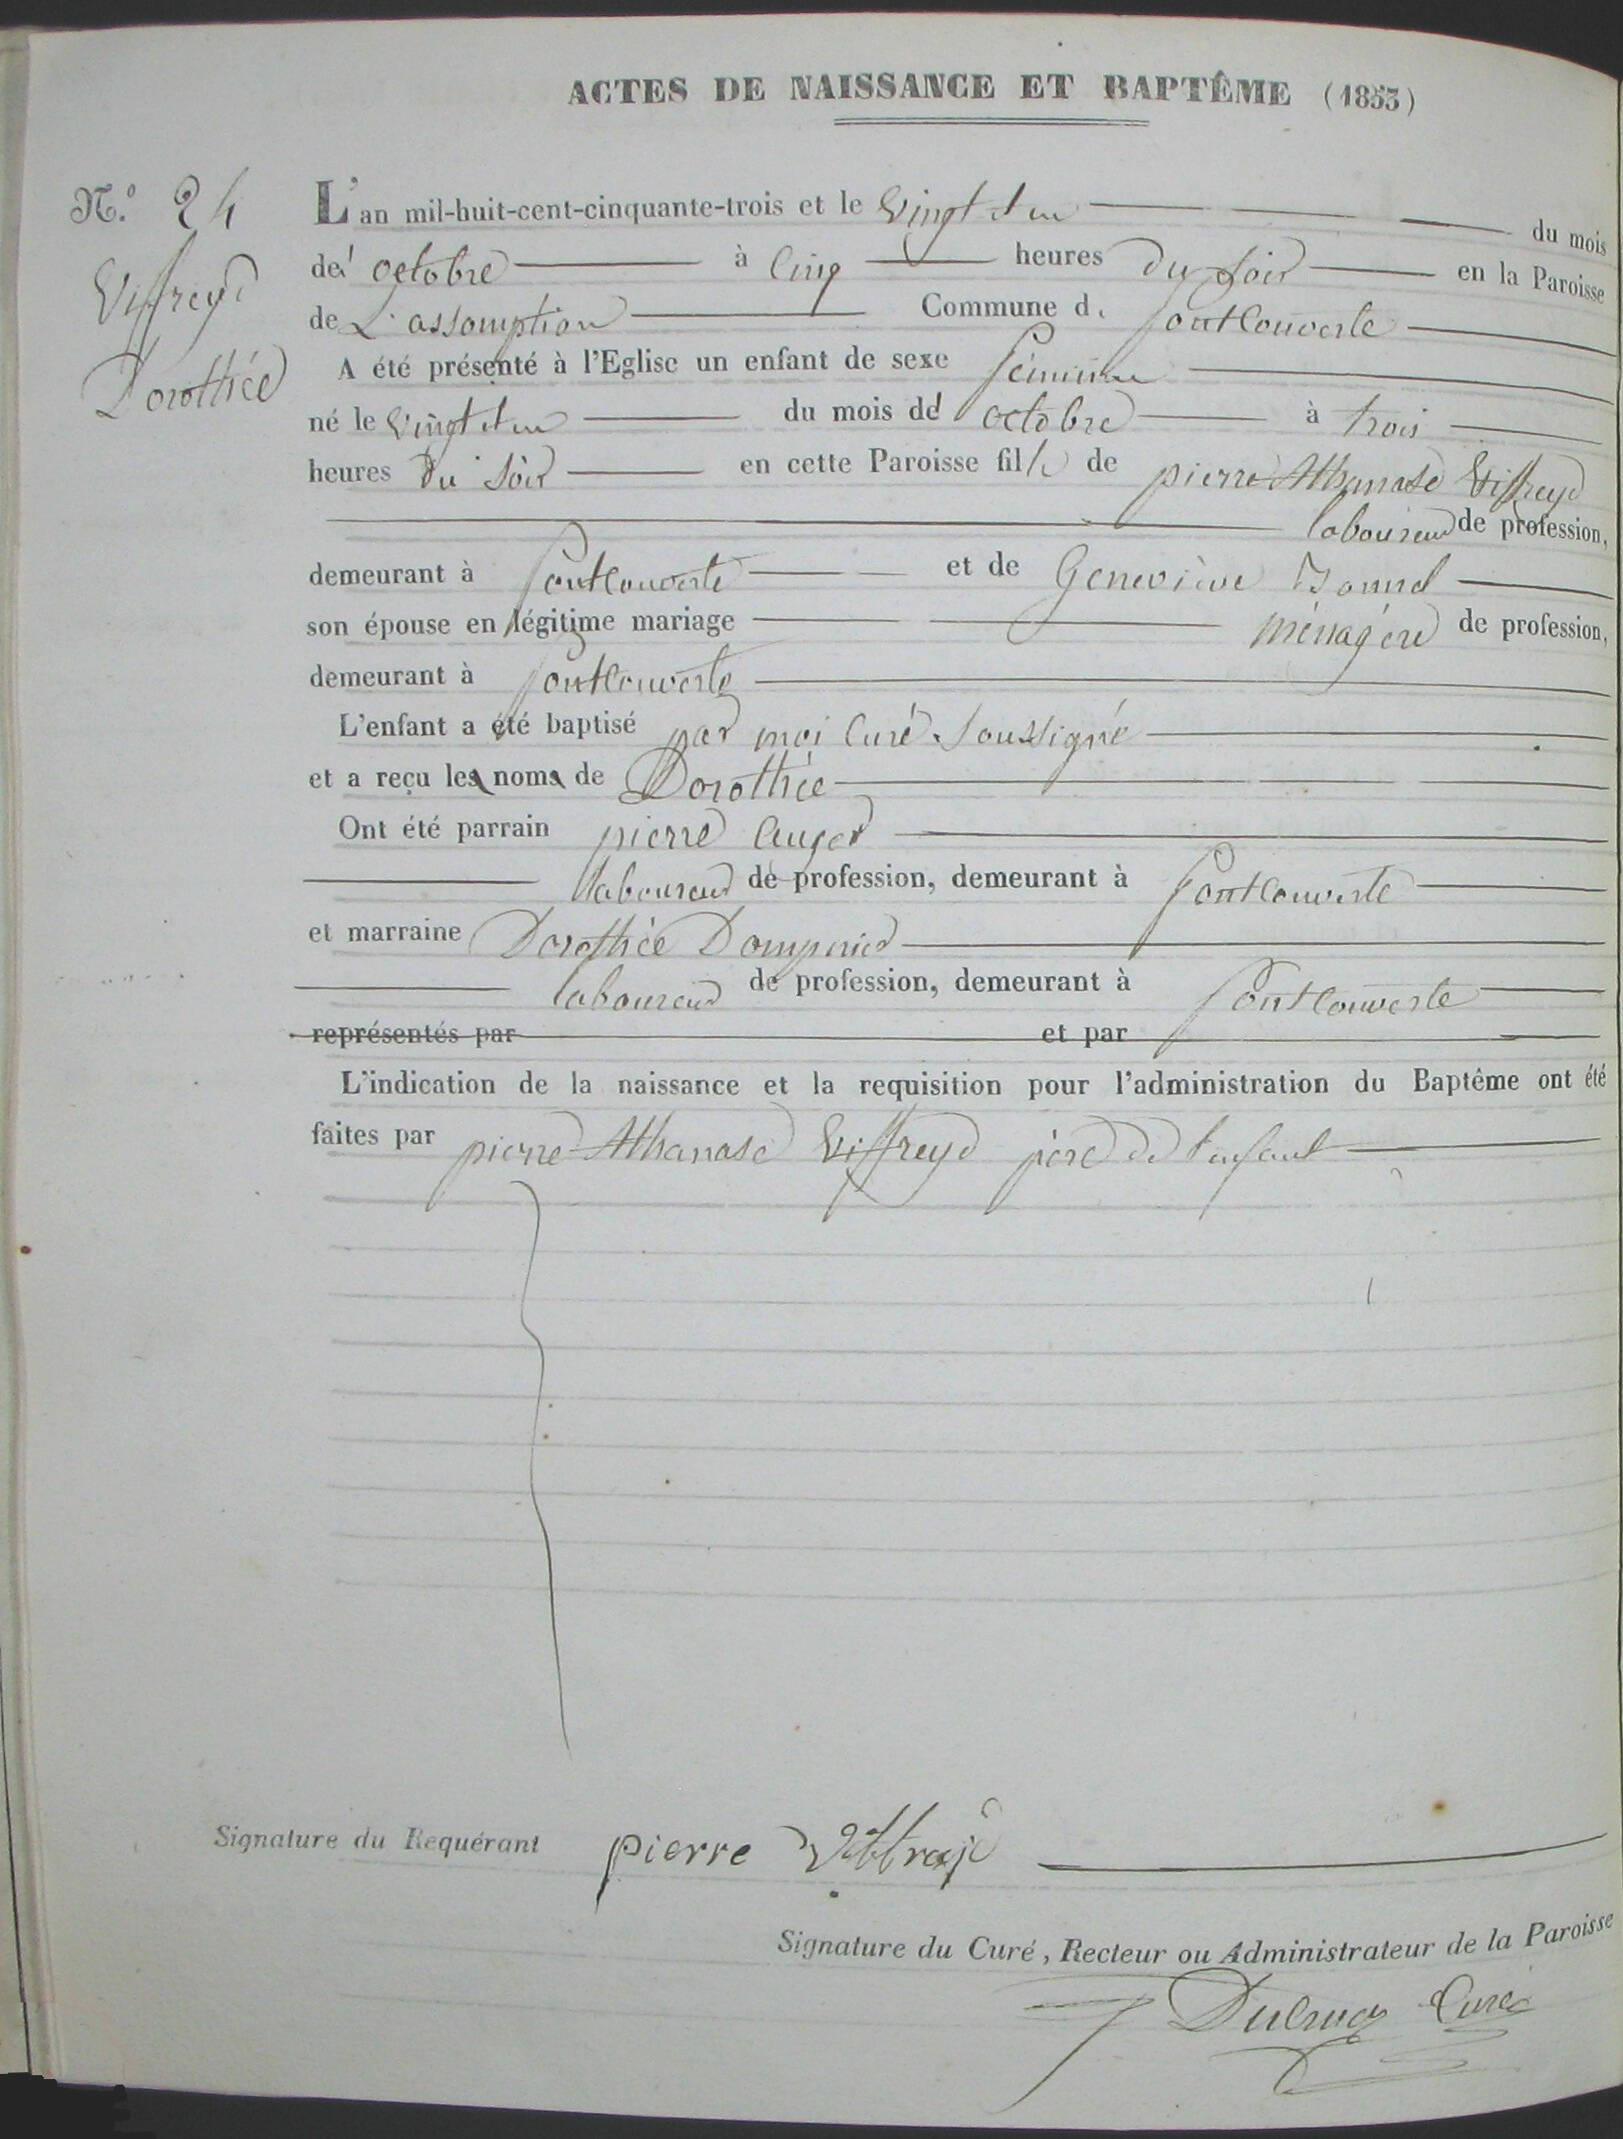 ACTES DE NAISSANCE ET BAPTÊME (1853)
N.º 24
Viffreyd
Dorothée
L'an mil-huit-cent-cinquante-trois et le vingt et un du mois
de octobre à cinq heures du soir en la Paroisse
de L'assomption Commune de fontcouverte
A été présenté à l'Eglise un enfant de sexe féminin
né le vingt et un du mois de octobre à trois
heures du soir en cette Paroisse fille de pierre Athanase Viffreyd
laboureur de profession,
demeurant à fontcouverte et de Geneviève
son épouse en légitime mariage ménagère de profession,
demeurant à fontcouverte
L'enfant a été baptisé par moi curé soussigné
et a reçu les noms de Dorothée
Ont été parrain pierre Auger
laboureur de profession, demeurant à fontcouverte
et marraine Dorothée Dompnier
laboureur de profession, demeurant à fontcouverte
représentés par et par
L'indication de la naissance et la requisition pour l'administration du Baptême ont été
faites par pierre Athanase Viffreyd père de l'enfant
Signature du Requérant pierre
Signature du Curé, Recteur ou Administrateur de la Paroisse
Curé